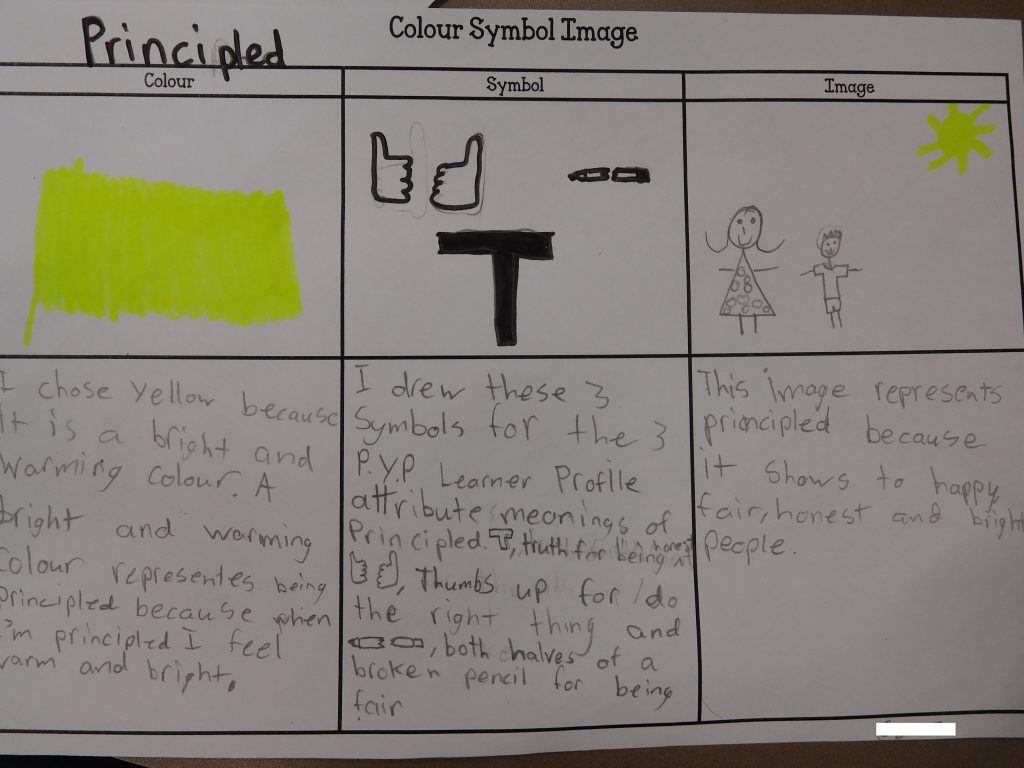 Principled
Colour Symbol Image
Colour
Symbol
Image
T
I chose yellow because
it is a bright and
warming colour. A
bright and warming
colour representes being
principled because when
I'm principled I feel
warm and bright.
I drew these 3
symbols for the 3
P.Y.P Learner Profile
attribute meanings of
Principled. T, truth for being honest
, Thumbs up for / do
the right thing and
, both halves of a
broken pencil for being
fair
This image represents
principled because
it shows to happy,
fair, honest and bright
people.